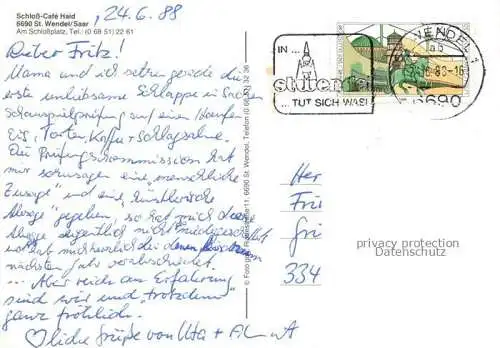 Schloß-Café Haid
6690 St. Wendel/Saar
Am Schloßplatz, Tel. (0 68 51) 22 61
, 24.6.88
Lieber Fritz!
Mama und ich setzen gerade die
erste unliebsame Schlappe in Sachen
Schauspielprüfung auf einen Haufen
Eis, Torten, Kaffee + Schlagsahne.
Die Prüfungskommission hat
mir sozusagen eine "menschliche
Zusage" und eine "künstlerische
Absage" gegeben, so hat mich diese
Absage eigentlich nicht
und hat mich herzlich bis
nächsten Jahr verabschiedet.
... Aber reich an Erfahrung
sind wir und "trotzdem"
ganz fröhlich.
liebe Grüße von Uta +
6690 St. Wendel, Telefon (0 68 51) 32 36
IN ...
st.wendel
... TUT SICH WAS!
WENDEL 1
6690
Her
Fri
Gri
334
privacy protection
Datenschutz